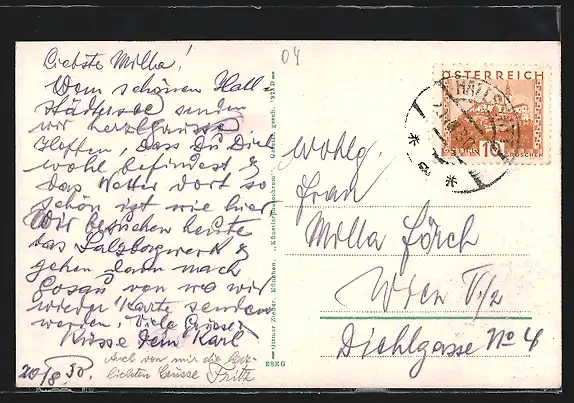 Liebste Milla!
Vom schönen Hall-
städtersee senden
wir herzl. Grüsse
Hoffen, dass Du Dich
wohl befindest &
das Wetter dort so
schön ist wie hier.
Wir besuchen heute
das Salzbergwerk &
gehen dann nach
Gosau von wo wir
wieder Karte senden
werden. Viele Grüsse
Küsse Dein Karl
Auch von mir die herz-
lichsten Grüsse Fritz
20/8.30.
04
Ottmar Zieher, München. „Künstlerphotochrom“. Gesetzl. gesch. 1928
ESKG
ÖSTERREICH
10
GROSCHEN
HALLS
Wohlg
Frau
Milla Förch
Wien V/2
Diehlgasse No 4